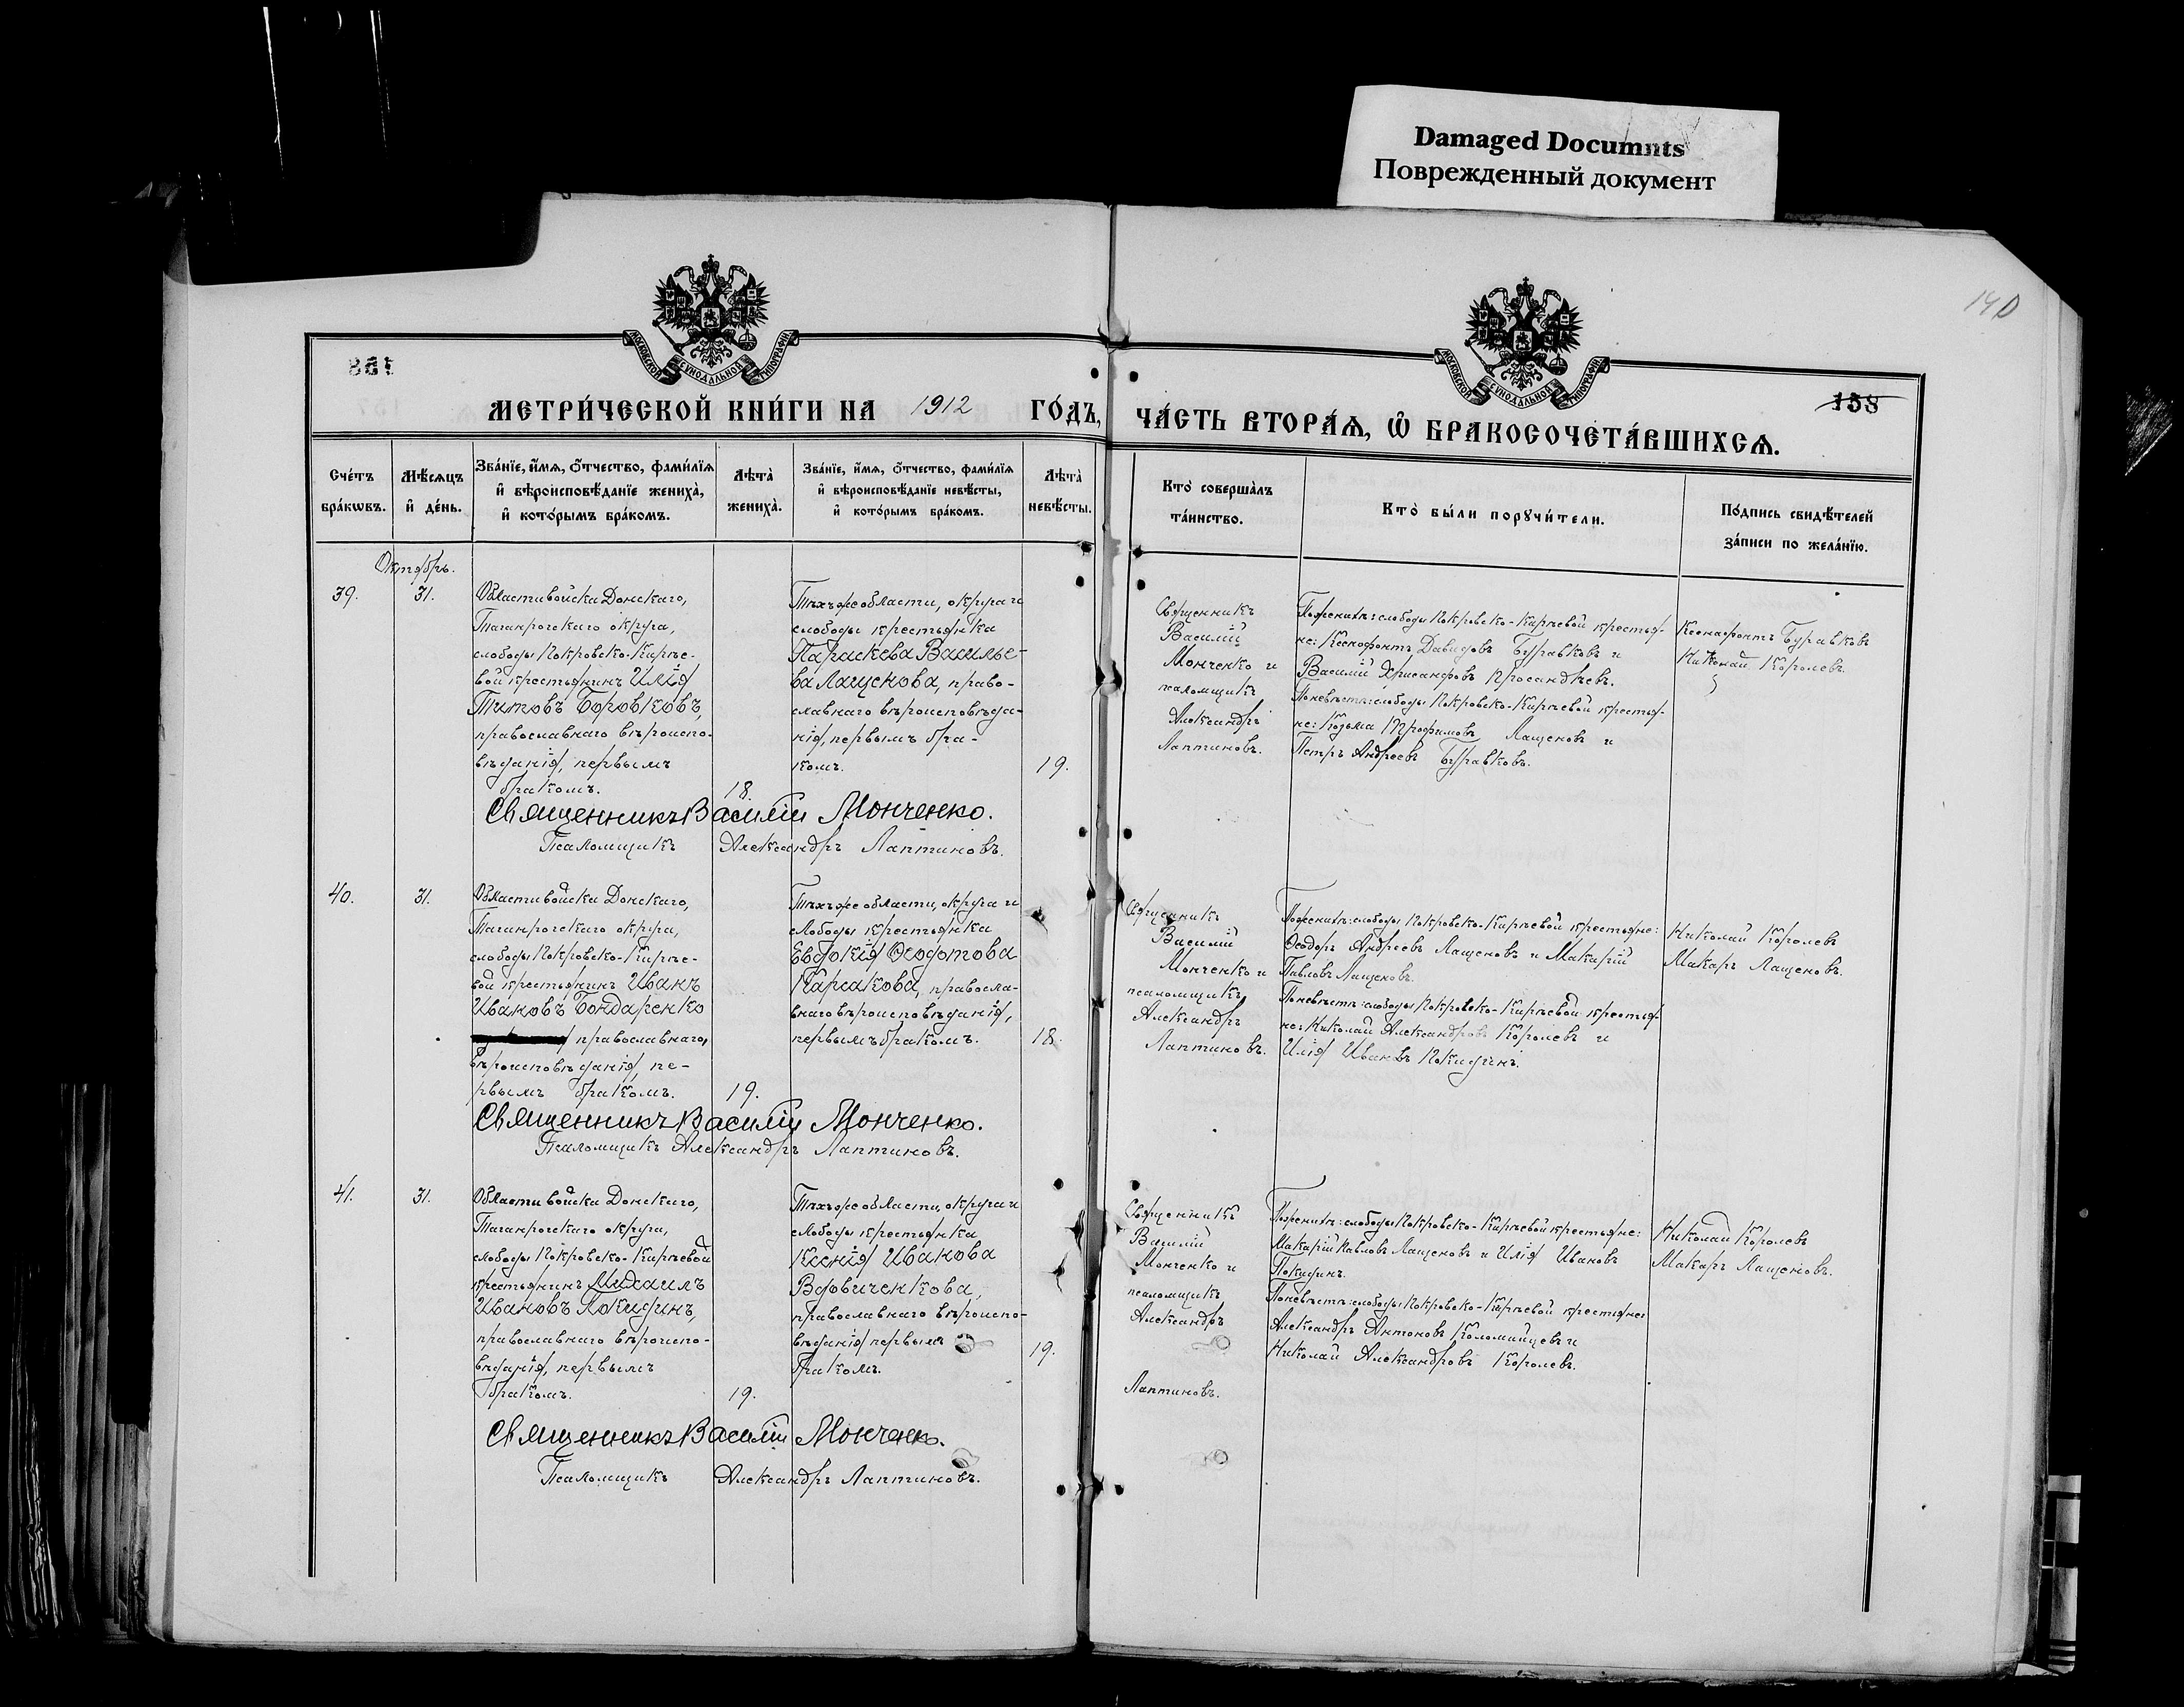 Damaged Documnts
Поврежденный документ
140
158
МОСКОВСКОЙ СѴНОДАЛЬНОЙ ТИПОГРАФІИ
МОСКОВСКОЙ СѴНОДАЛЬНОЙ ТИПОГРАФІИ
158
МЕТРИ́ЧЕСКОЙ КНИ́ГИ НА 1912 ГО́ДЪ,
ЧА́СТЬ ВТОРА́Ѧ, Ѡ҆ БРАКОСОЧЕТА́ВШИХСѦ.
Сче́тъ
бра́кѡвъ.
Мѣ́сѧцъ
и҆ де́нь.
Зва́нїе, и҆́мѧ, ѻ҆́тчество, фами́лїѧ
и҆ вѣроисповѣ́данїе жениха̀,
и҆ кото́рымъ бра́комъ.
Лѣта̀
жениха̀.
Зва́нїе, и҆́мѧ, ѻ҆́тчество, фами́лїѧ
и҆ вѣроисповѣ́данїе невѣ́сты,
и҆ кото́рымъ бра́комъ.
Лѣта̀
невѣ́сты.
Кто̀ соверша́лъ
та́инство.
Кто̀ бы́ли порꙋчи́тели.
По́дпись свидѣ́телей
за́писи по жела́нїю.
Октябрь.
39.
31.
Области войска Донскаго,
Таганрогскаго округа,
слободы Покровско-Кирѣе-
вой крестьянинъ Илія
Титовъ Боровковъ,
православнаго вѣроиспо-
вѣданія, первымъ
бракомъ.
18.
Тѣхъ же области, округа и
слободы крестьянка
Параскева Василье-
ва Лащенова, право-
славнаго вѣроисповѣда-
нія, первымъ бра-
комъ.
19.
Священникъ
Василій
Монченко и
псаломщикъ
Александръ
Лаптиновъ.
По женихѣ: слободы Покровско-Кирѣевой крестья-
не: Ксенофонтъ Давидовъ Буравковъ и
Василій Хрисанфовъ
По невѣстѣ: слободы Покровско-Кирѣевой крестья-
не: Козьма Трофимовъ Лащеновъ и
Петръ Андреевъ Буравковъ.
Ксенафонтъ Буравковъ
Николай Королевъ.
Священникъ Василій Монченко.
Псаломщикъ Александръ Лаптиновъ.
40.
31.
Области войска Донскаго,
Таганрогскаго округа,
слободы Покровско-Кирѣе-
вой крестьянинъ Иванъ
Ивановъ Бондаренко
православнаго,
вѣроисповѣданія, пе-
рвымъ бракомъ.
19.
Тѣхъ же области, округа и
слободы крестьянка
Евдокія Ѳеодотова
Карсакова, правосла-
внаго вѣроисповѣданія,
первымъ бракомъ.
18.
Священникъ
Василій
Монченко и
псаломщикъ
Александръ
Лаптиновъ.
По женихѣ: слободы Покровско-Кирѣевой крестьяне:
Ѳеодоръ Андреевъ Лащеновъ и Макарій
Павловъ Лащеновъ.
По невѣстѣ: слободы Покровско-Кирѣевой крестья-
не: Николай Александровъ Королевъ и
Илія Ивановъ Покидинъ.
Николай Королевъ
Макаръ Лащеновъ.
Священникъ Василій Монченко.
Псаломщикъ Александръ Лаптиновъ.
41.
31.
Области войска Донскаго,
Таганрогскаго округа,
слободы Покровско-Кирѣевой
крестьянинъ Михаилъ
Ивановъ Покидинъ,
православнаго вѣроиспо-
вѣданія, первымъ
бракомъ.
19.
Тѣхъ же области, округа и
слободы крестьянка
Ксенія Иванова
Вдовиченкова,
православнаго вѣроиспо-
вѣданія первымъ
бракомъ.
19.
Священникъ
Василій
Монченко и
псаломщикъ
Александръ
Лаптиновъ.
По женихѣ: слободы Покровско-Кирѣевой крестьяне:
Макарій Павловъ Лащеновъ и Илія Ивановъ
Покидинъ.
По невѣстѣ: слободы Покровско-Кирѣевой крестьяне:
Александръ Антоновъ Коломийцевъ и
Николай Александровъ Королевъ.
Николай Королевъ
Макаръ Лащеновъ.
Священникъ Василій Монченко.
Псаломщикъ Александръ Лаптиновъ.